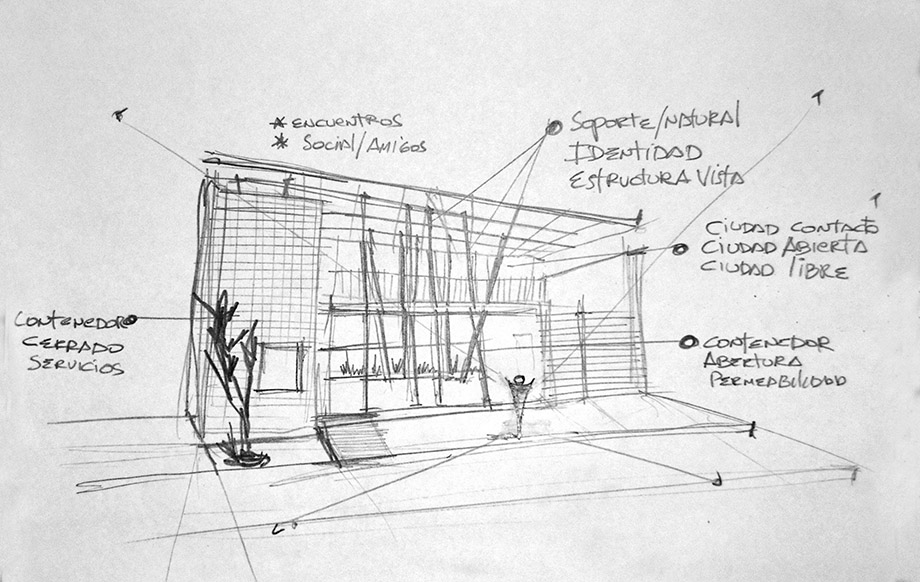 * ENCUENTROS
* SOCIAL/AMIGOS
SOPORTE/NATURAL
IDENTIDAD
ESTRUCTURA VISTA
CIUDAD CONTACTO
CIUDAD ABIERTA
CIUDAD LIBRE
CONTENEDOR
CERRADO
SERVICIOS
CONTENEDOR
ABERTURA
PERMEABILIDAD